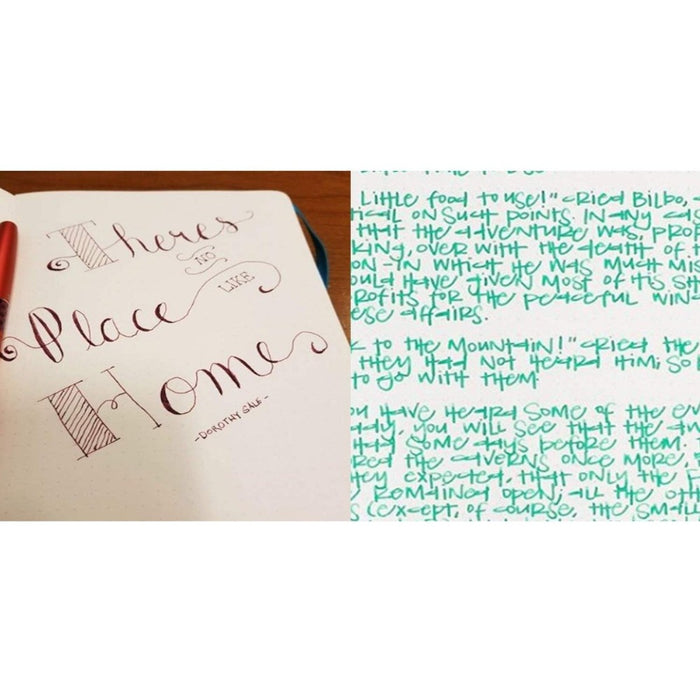 Theres
NO
LIKE
Place
Home
-DOROTHY GALE-
Little food to use!" cried Bilbo,
ON SUCH POINTS. IN ANY
THAT THE ADVENTURE WAS,
KING, OVER WITH THE DEATH OF
ON -IN WHICH HE WAS MUCH
HAVE GIVEN MOST OF HIS
FOR THE PEACEFUL
AFFAIRS.
TO THE MOUNTAIN!" CRIED THE
THEY HAD NOT HEARD HIM; SO
TO GO WITH THEM.
HAVE HEARD SOME OF THE
YOU WILL SEE THAT THE
SOME DAYS BEFORE THEM.
THE CAVERNS ONCE MORE,
EXPECTED, THAT ONLY THE
REMAINED OPEN; ALL THE
(EXCEPT, OF COURSE, THE SMALL